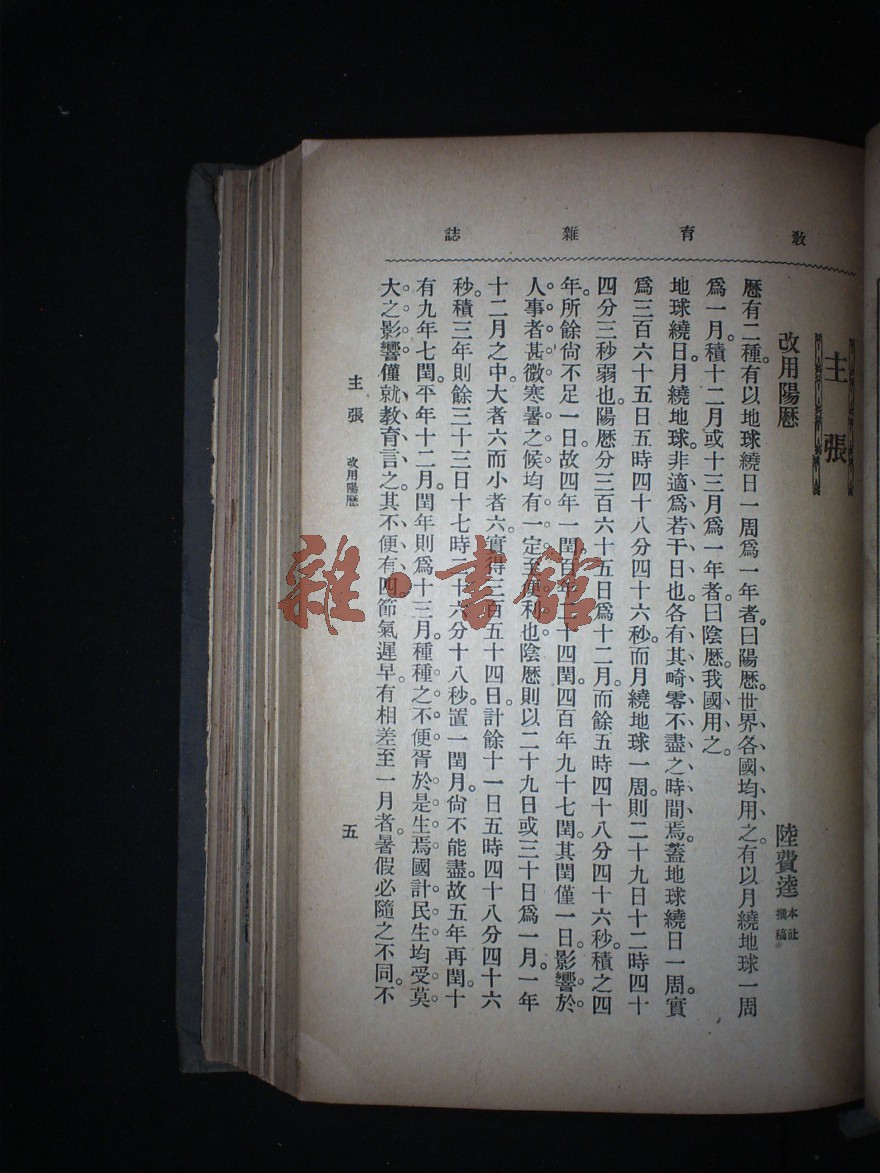 教育雜誌
主張
改用陽曆
陸費逵 本社撰稿
曆有二種。有以地球繞日一周爲一年者。曰陽曆。世界各國均用之。有以月繞地球一周
爲一月。積十二月或十三月爲一年者。曰陰曆。我國用之。
地球繞日。月繞地球。非適爲若干日也。各有其畸零不盡之時間焉。蓋地球繞日一周。實
爲三百六十五日五時四十八分四十六秒。而月繞地球一周。則二十九日十二時四十
四分三秒弱也。陽曆分三百六十五日爲十二月。而餘五時四十八分四十六秒。積之四
年。所餘尙不足一日。故四年一閏。百年二十四閏。四百年九十七閏。其閏僅一日。影響於
人事者甚微。寒暑之候。均有一定。至便利也。陰曆則以二十九日或三十日爲一月。一年
十二月之中。大者六而小者六。實得三百五十四日。計餘十一日五時四十八分四十六
秒。積三年則餘三十三日十七時二十六分十八秒。置一閏月。尙不能盡。故五年再閏。十
有九年七閏。平年十二月。閏年則爲十三月。種種之不便。胥於是生焉。國計民生。均受莫
大之影響。僅就敎育言之。其不便有四。節氣遲早。有相差至一月者。暑假必隨之不同。不
主張 改用陽曆
五
雜·書館